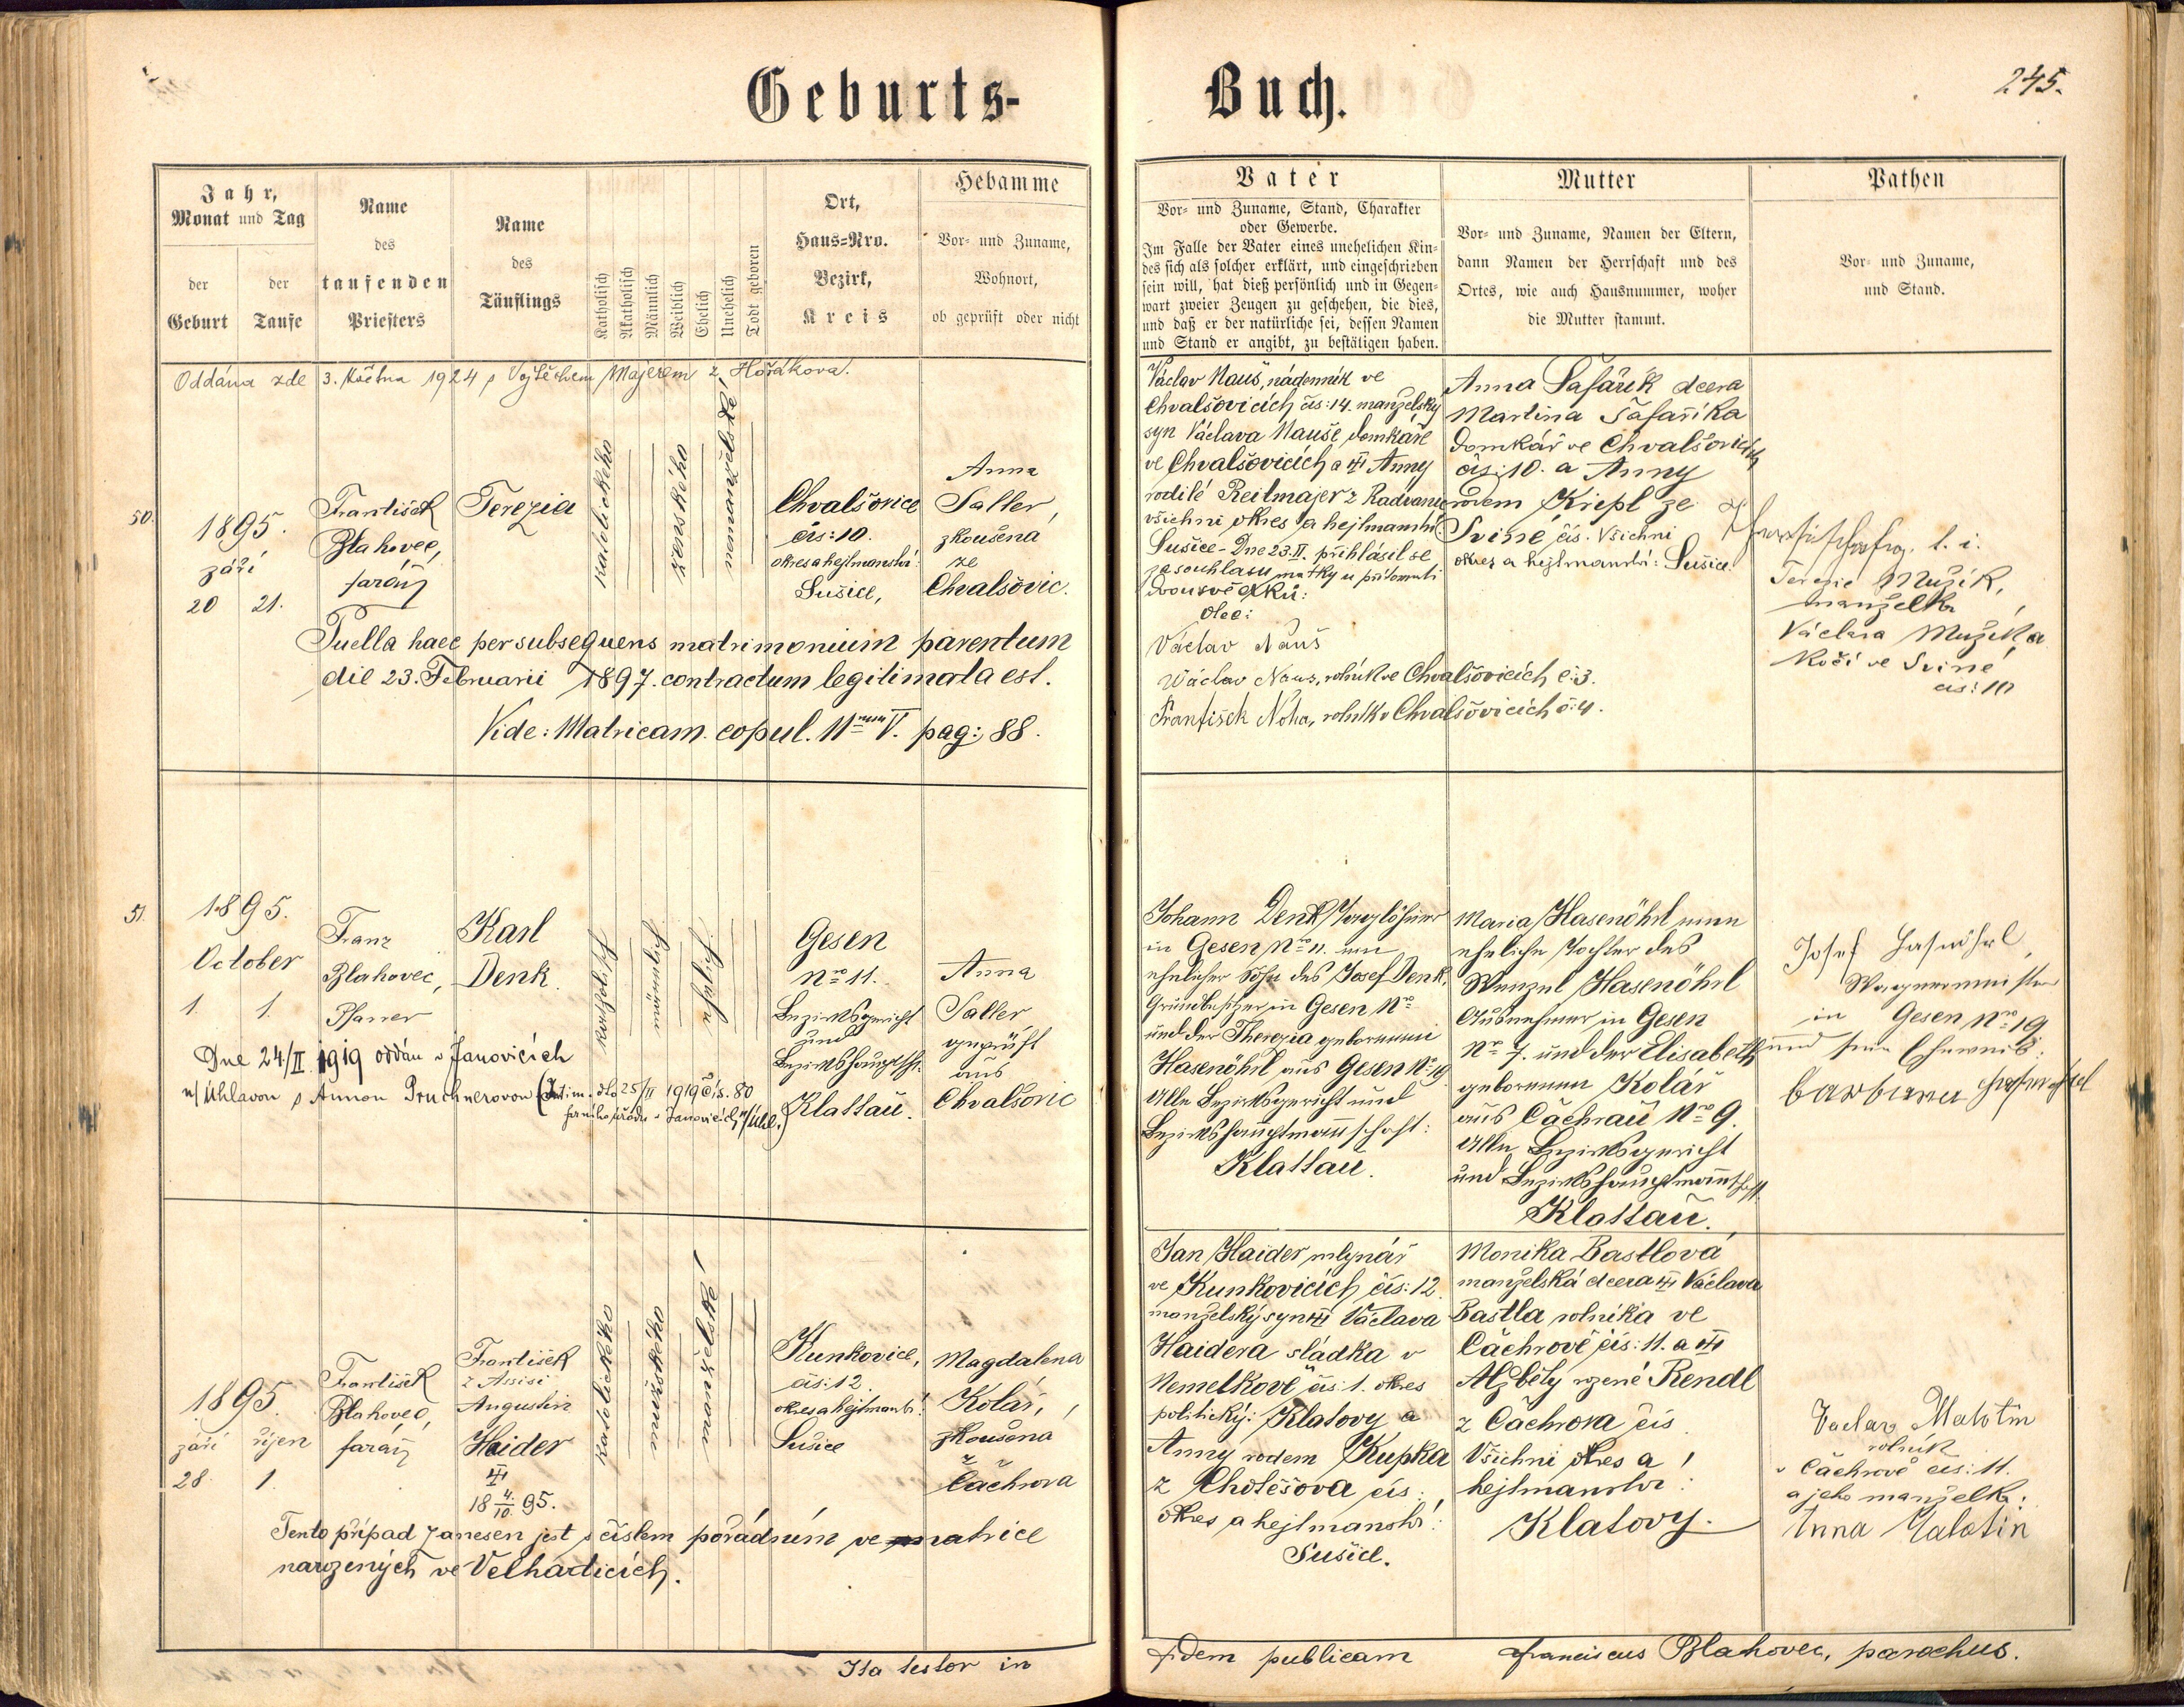 Geburts-
Buch.
245.
Jahr,
Monat und Tag
der Geburt
der Taufe
Name
des
taufenden
Priesters
Name
des
Täuflings
Katholisch
Akatholisch
Männlich
Weiblich
Ehelich
Unehelich
Todt geboren
Ort,
Haus-Nro.
Bezirk,
Kreis
Hebamme
Vor- und Zuname,
Wohnort,
ob geprüft oder nicht
Vater
Vor- und Zuname, Stand, Charakter
oder Gewerbe.
Im Falle der Vater eines unehelichen Kin-
des sich als solcher erklärt, und eingeschrieben
sein will, hat dieß persönlich und in Gegen-
wart zweier Zeugen zu geschehen, die dies,
und daß er der natürliche sei, dessen Namen
und Stand er angibt, zu bestätigen haben.
Mutter
Vor- und Zuname, Namen der Eltern,
dann Namen der Herrschaft und des
Ortes, wie auch Hausnummer, woher
die Mutter stammt.
Pathen
Vor- und Zuname,
und Stand.
Oddána zde 3. května 1924 s Vojtěchem Majerem z Hořákova.
50.
1895.
září
20 21.
František
Blahovec,
farář
Terezia
katolického
ženského
nemanželské
Chvalšovice
čís: 10.
okres a hejtmanství:
Sušice,
Anna
Saller,
zkoušená
ze
Chvalšovic.
Puella haec per subsequens matrimonium parentum
die 23. Februarii 1897. contractum legitimata est.
Vide: Matricam copul. V. pag: 88.
Václav Nauš, nádenník ve
Chvalšovicích čís: 14. manželský
syn Václava Nauše domkáře
ve Chvalšovicích a Anny
rodilé Reitmajer z Radvanic
všichni okres a hejtmanství
Sušice - Dne 23.II. přihlásil se
za souhlasu matky u přítomnosti
dvou svědků:
Otec:
Václav Nauš
Václav Naus, rolník ve Chvalšovicích č: 3.
František Noha, rolník v Chvalšovicích č: 4.
Anna Šafařík dcera
Martina Šafaříka
domkář ve Chvalšovicích
čís: 10. a Anny
rodem Kriepl ze
Sviné čís. Všichni
okres a hejtmanství: Sušice.
Terezie Mužík,
manželka
Václava Mužíka
kočí ve Sviné
čís: 10
51.
1895.
October
1. 1.
Franz
Blahovec,
Pfarrer
Karl
Denk.
katholisch
männlich
ehelich
Gesen
Nro 11.
Bezirksgericht
und
Bezirkshauptsch:
Klattau.
Anna
Saller
geprüft
aus
Chvalšovic
Dne 24/II 1919 oddán v Janovicích
n/Úhlavou s Annou Pruchnerovou (Intim. dto 25/II 1919 čís. 80
farního úřadu v Janovicích n/Úhl.)
Johann Denk Taglöhner
in Gesen Nro 11. ein
ehelicher Sohn des Josef Denk,
Grundbesitzer in Gesen Nro
und der Therezia geborenen
Hasenöhrl aus Gesen Nro 19
Alle Bezirksgericht und
Bezirkshauptmannschaft:
Klattau.
Maria Hasenöhrl eine
eheliche Tochter des
Wenzel Hasenöhrl
Ausnehmer in Gesen
Nro 7. und der Elisabeth
geborenen Kolář
aus Čachrau Nro 9.
Alle Bezirksgericht
und Bezirkshauptmannschaft
Klattau.
Josef Hasnöhrl,
Wagnermeister
in Gesen Nro 19
und sein Eheweib:
barbara Hasenöhrl
1895.
září říjen
28. 1.
František
Blahovec,
farář
František
z Assisi
Augustin
Haider
18 4./10. 95.
katolického
mužského
manželské
Kunkovice,
čís: 12
okres a hejtmanství:
Sušice
Magdalena
Kolář,
zkoušená
z
Čachrova
Tento případ zanesen jest s číslem pořádním ve matrice
narozených ve Velharticích.
Jan Haider mlynář
ve Kunkovicích čís: 12.
manželský syn Václava
Haidera sládka v
Nemelkově čís: 1. okres
politický: Klatovy a
Anny rodem Kupka
z Chotěšova čís:
okres a hejtmanství:
Sušice.
Monika Bastlová
manželská dcera Václava
Bastla rolníka ve
Čachrově čís: 11. a
Alžběty rozené Rendl
z Čachrova čís
Všichni okres a
hejtmanství:
Klatovy.
Vaclav Malotin
rolník
v Čachrově čís: 11.
a jeho manželka:
Anna Malotin
Ita testor in
fidem publicam
Franciscus Blahovec, parochus.